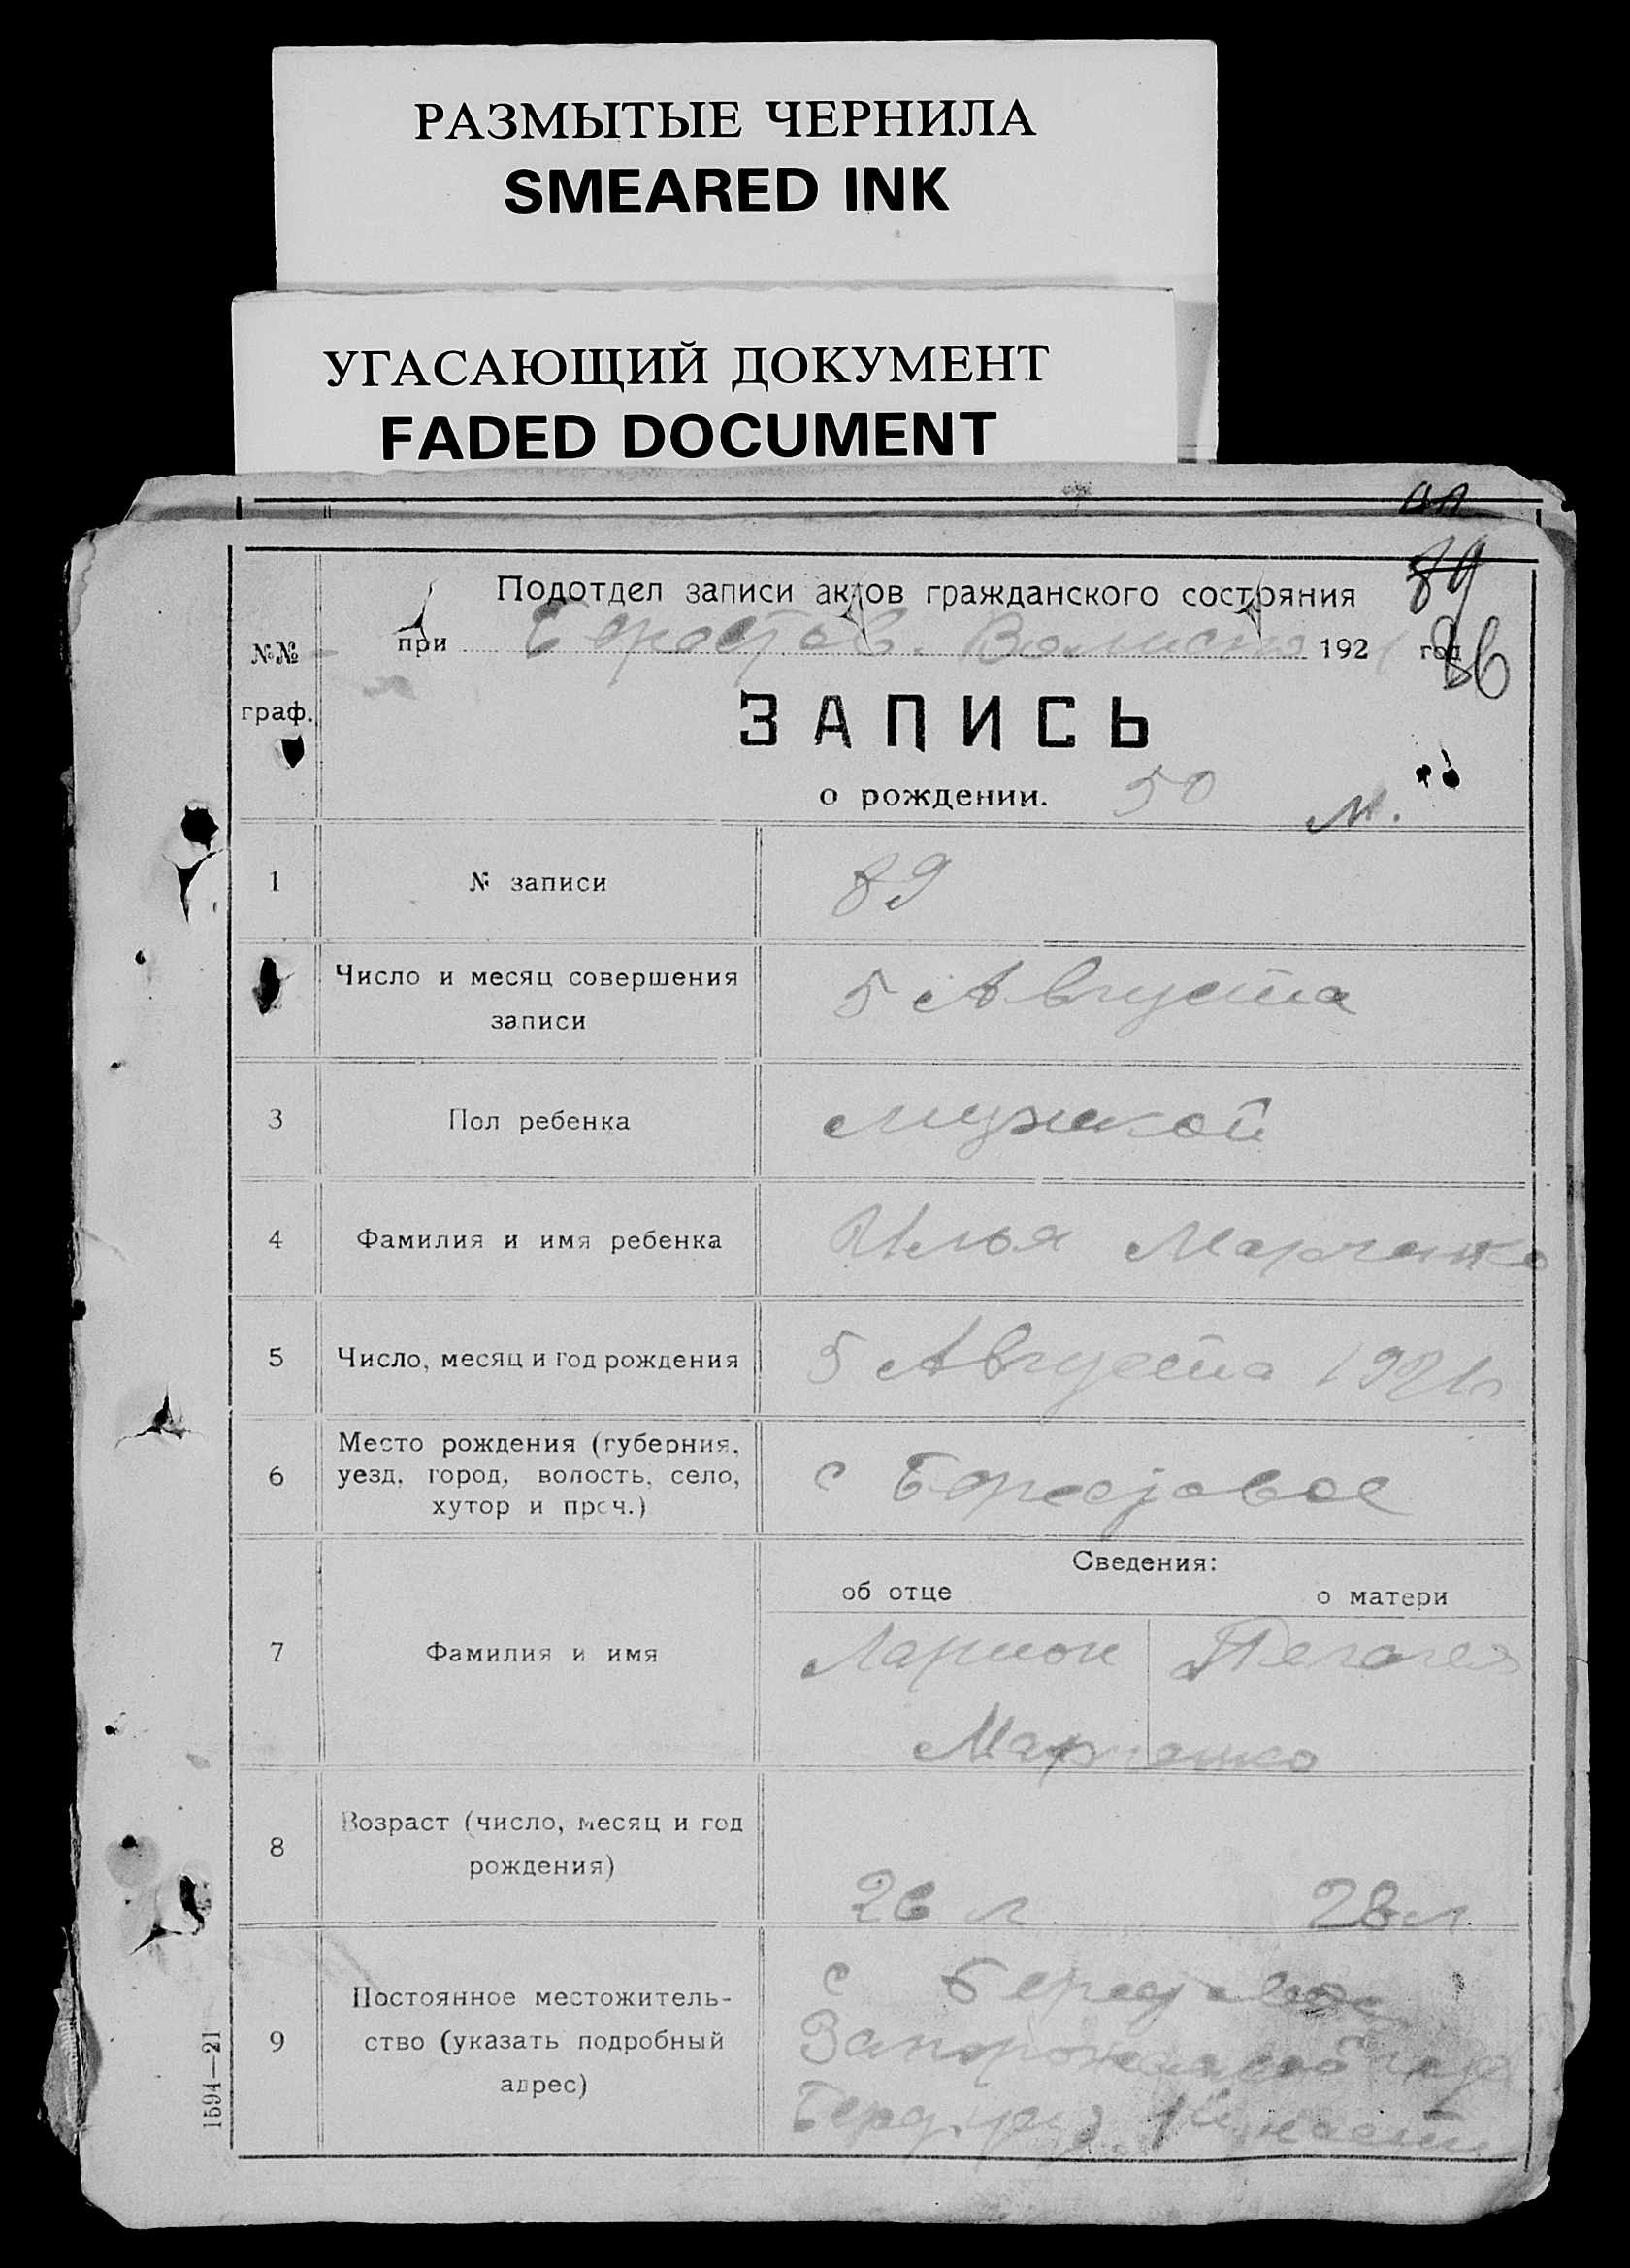 РАЗМЫТЫЕ ЧЕРНИЛА
SMEARED INK
УГАСАЮЩИЙ ДОКУМЕНТ
FADED DOCUMENT
89
Подотдел записи актов гражданского состояния
№№
при 1921 год
86
граф.
ЗАПИСЬ
о рождении. 50 М.
1 № записи 89
Число и месяц совершения
записи
5 Августа
3 Пол ребенка мужской
4 Фамилия и имя ребенка Илья Марченко
5 Число, месяц и год рождения 5 Августа 1921г
6 Место рождения (губерния,
уезд, город, волость, село,
хутор и проч.)
с
Сведения:
об отце о матери
7 Фамилия и имя Ларион Пелагея
Марченко
8 Возраст (число, месяц и год
рождения)
26 л 28 л.
9 Постоянное местожитель-
ство (указать подробный
адрес)
с
Запорожской губ
Берд. уез.
1594—21